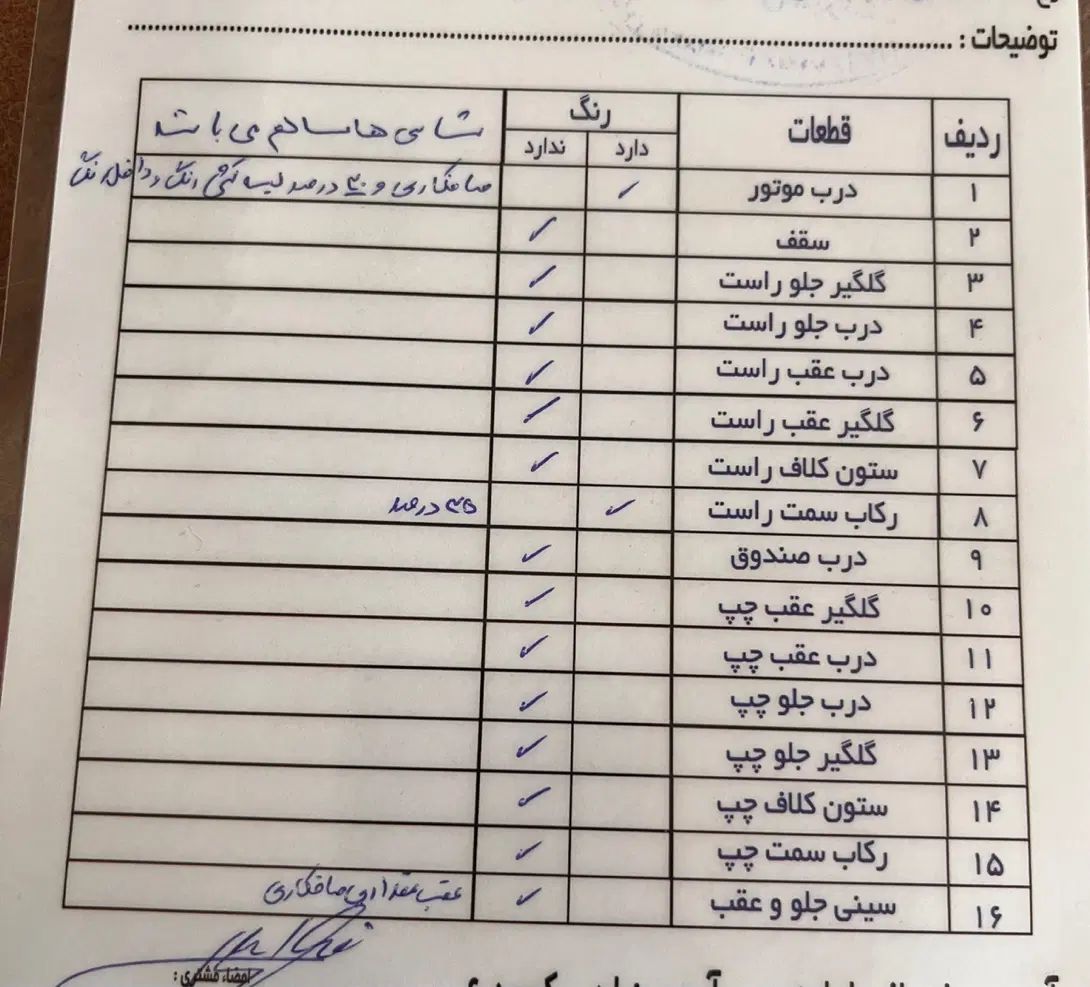 توضیحات :
ردیف قطعات رنگ شاسی ها سالم می باشد
دارد ندارد
۱ درب موتور ✓ صافکاری و ۳۰ درصد لیسه گیری رنگ و داخل رنگ
۲ سقف ✓
۳ گلگیر جلو راست ✓
۴ درب جلو راست ✓
۵ درب عقب راست ✓
۶ گلگیر عقب راست ✓
۷ ستون کلاف راست ✓
۸ رکاب سمت راست ✓ ۳۵ درصد
۹ درب صندوق ✓
۱۰ گلگیر عقب چپ ✓
۱۱ درب عقب چپ ✓
۱۲ درب جلو چپ ✓
۱۳ گلگیر جلو چپ ✓
۱۴ ستون کلاف چپ ✓
۱۵ رکاب سمت چپ ✓
۱۶ سینی جلو و عقب ✓ عقب مقداری صافکاری
امضاء مشتری :